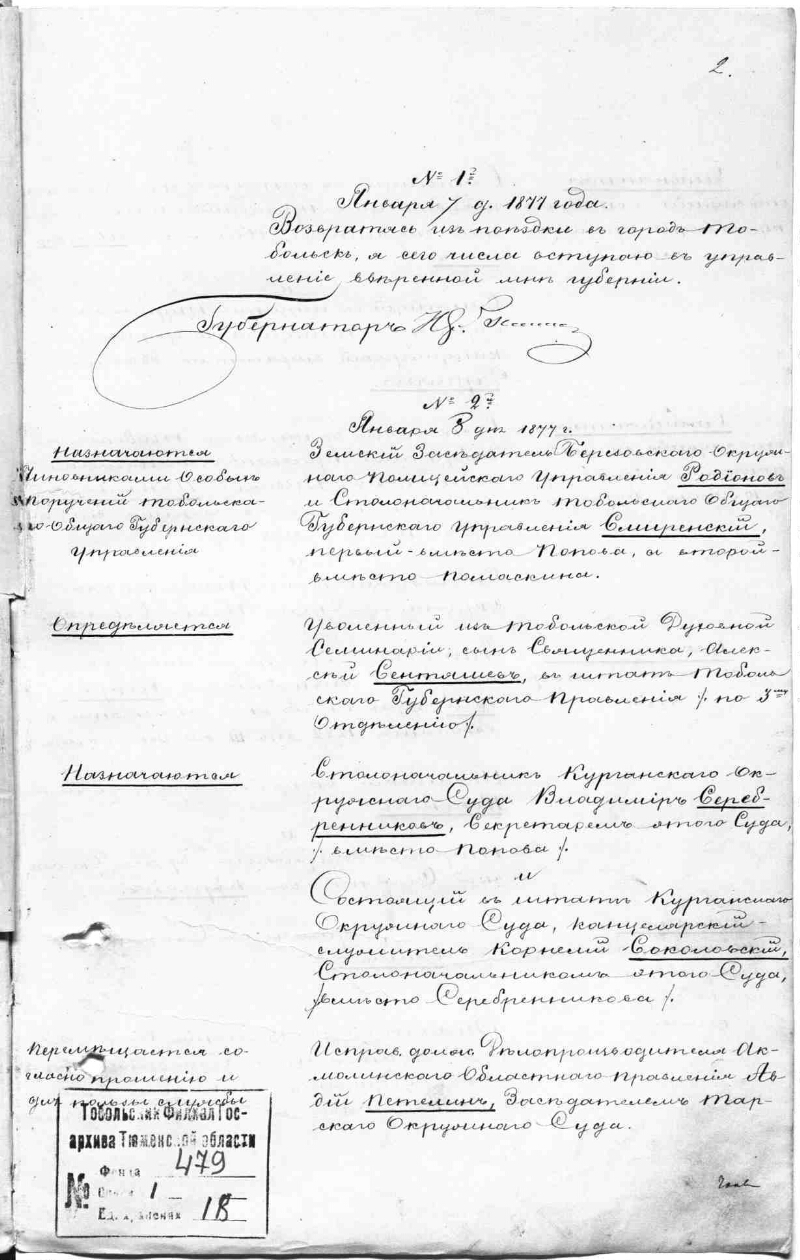 2.
№ 1й
Января 7 д. 1877 года.
Возвратясь изъ поѣздки въ городъ То-
больскъ, я сего числа вступаю въ управ-
леніе ввѣренной мнѣ губерніи.
Губернаторъ
№ 2й
Января 8 дня 1877 г.
Назначаются
Чиновниками Особыхъ
порученій Тобольска-
го Общаго Губернскаго
Управленія
Земскій Засѣдатель Березовскаго Окруж-
наго Полицейскаго Управленія Родіоновъ
и Столоначальникъ Тобольскаго Общаго
Губернскаго Управленія Смиренскій,
первый-вмѣсто Попова, а второй-
вмѣсто Помаскина.
Опредѣляется
Уволенный изъ Тобольской Духовной
Семинаріи, сынъ Священника, Алек-
сѣй Сентяшевъ, въ штатъ Тоболь-
скаго Губернскаго Правленія /. по 3му
Отдѣленію /.
Назначаются
Столоначальникъ Курганскаго Ок-
ружнаго Суда Владиміръ Сереб-
ренниковъ, Секретаремъ этого Суда,
/. вмѣсто Попова /.
и
Состоящій въ штатѣ Курганскаго
Окружнаго Суда, канцелярскій-
служитель Корнелій Соколовскій,
Столоначальникомъ этого Суда,
/. вмѣсто Серебренникова /.
Перемѣщается со-
гласно прошенію и
для пользы службы
Исправ. долж. Дѣлопроизводителя Ак-
молинскаго Областнаго Правленія Ав-
дій Петелинъ, Засѣдателемъ Тар-
скаго Окружнаго Суда.
Тобольский Филиал Гос-
архива Тюменской области
№
Фонда 479
Описи 1
Ед. хранения 18